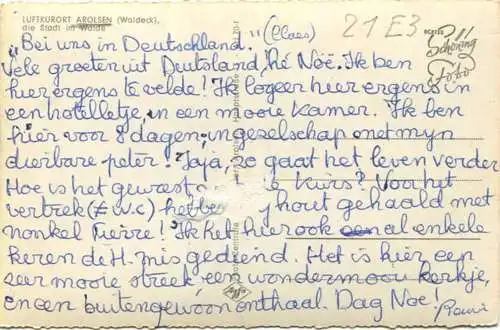 LUFTKURORT AROLSEN (Waldeck),
die Stadt im Walde
21 E3
Schöning
Foto
„Bei uns in Deutschland." (Claes)
Vele groeten uit Duitsland, hé Noë. Ik ben
hier ergens te velde! Ik logeer hier ergens in
een hotelletje, in een mooie kamer. Ik ben
hier voor 8 dagen, in gezelschap met mijn
dierbare peter! Jaja, zo gaat het leven verder
Hoe is het geweest kurs? Voor het
vertrek (≠ w.c) hout gehaald met
nonkel Pierre! Ik heb hier ook al enkele
keren de H. mis gediend. Het is hier een
zeer mooie streek, een wondermooi kerkje,
en een buitengewoon onthaal. Dag Noë!